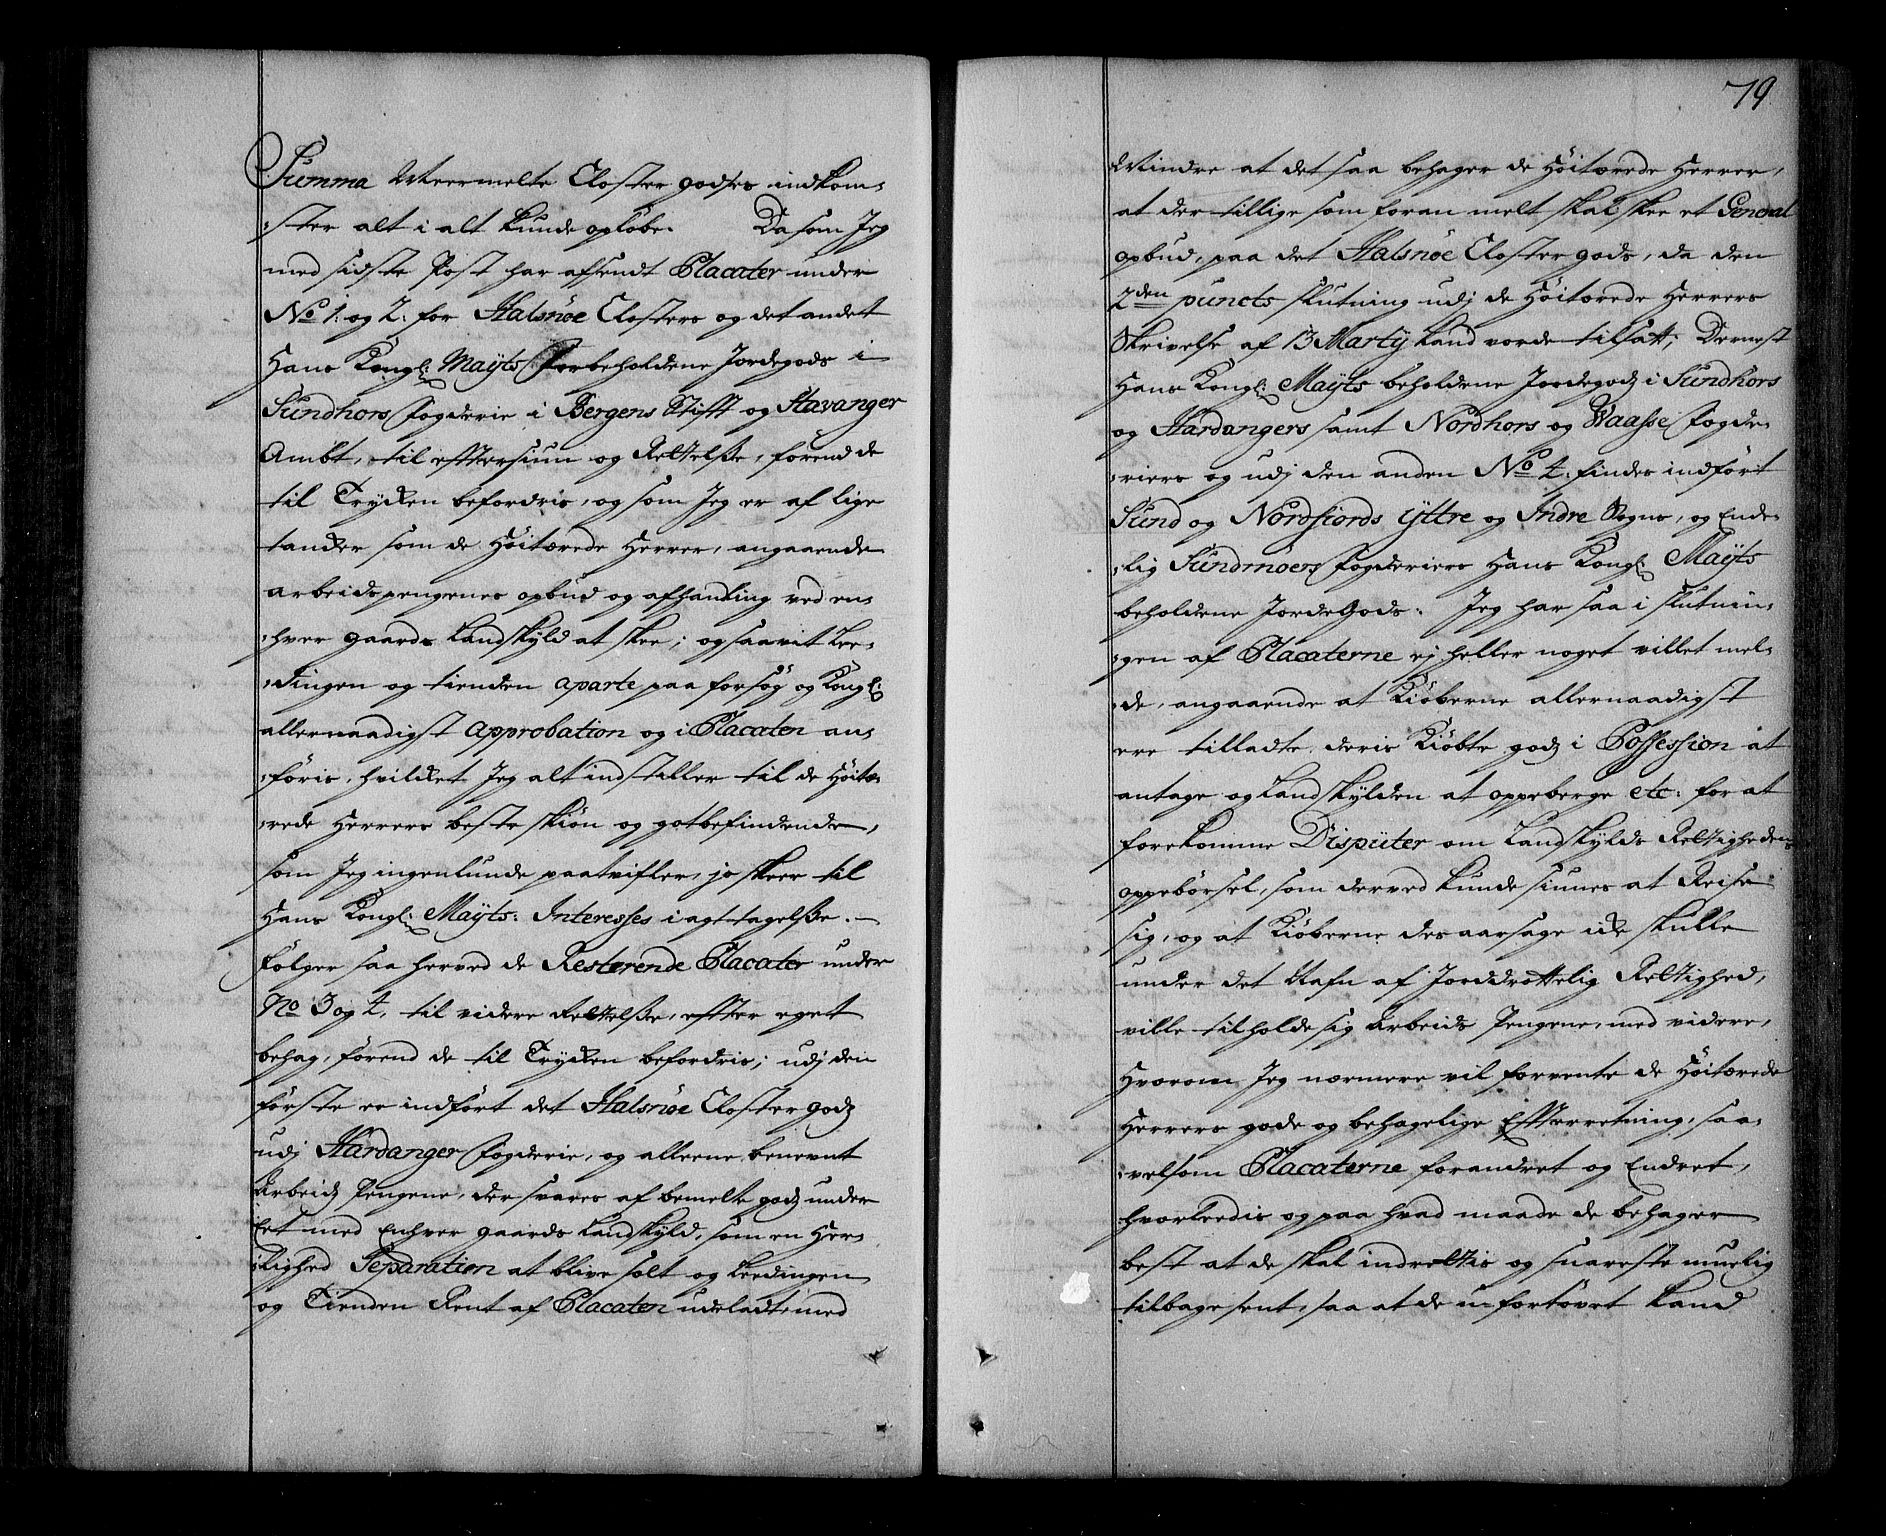 Summa Meermelte Closter godses indkom-
:ster alt i alt kunde opløbe. Da som Jeg
med sidste Post har afsendt Placater under
No 1. og 2. for Halsnöe Closters og det andet
Hans Kongl: Mayts forbeholdene Jordegods i
Sundhors fogderie i Bergens Stifft og Stavanger
Ambt, til efftersiun og Rettelsse, förend de
til Trycken befordris, og som Jeg er af lige
tancker som de Höitærede Herrer, angaaende
arbeidspengenes opbud og afhandling ved en-
:hver gaards Landskyld at skee; og saavit Lee-
:dingen og tienden aparte paa forsög og Kongl:
allernaadigst approbation og i Placaten an-
:föris, hvilcket Jeg alt indstiller til de Höitæ-
:rede Herrers beste skiøn og gotbefindende,
som Jeg ingenlunde paatvifler, jo skeer til
Hans Kongl: Mayts: Interesses i agttagelsse.
Fölger saa herved de Resterende Placater under
No 3 og 4, til videre Rettelsse, effter eget
behag, förend de til Trycken befordris; udj den
förste er indfört det Halsnöe Closter godz
udj Hardanger fogderie, og alleene benevnt
Arbeidz Pengene, der svares af bemelte godz under
Eet med Enhver gaards Landskyld, som en Her-
:lighed Separation at blive solt og Leedingen
og Tienden Rent af Placaten udeladte med
79.
Mindre at det saa behager de Höitærede Herrer,
at der tillige som foran melt skal skee et General
opbud, paa det Halsnöe Closter gods, da den
2den puncts slutning udj de Höitærede Herrers
Skrivelse af 13 Marty kand vorde tilsatt; Dernest
Hans Kongl: Mayts beholdene Jordegodz i Sundhors
og Hardangers samt Nordhors og Waasse fogde-
:riers og udj den anden No 4. findes indfört
Sund og Nordfiords yttre og Indre Sogne, og Ende-
:lig Sundmöers fogderiers Hans Kongl: Mayts
beholdene JordeGods. Jeg har saa i slutnin-
:gen af Placaterne ej heller noget villet mel-
:de, angaaende at Kiöberne allernaadigst
ere tilladte deris Kiöbte godz i Possession at
antage og Landskylden at oppeberge etc: for at
forekomme Disputer om Landskylds Rettighedens
oppebörsel, som derved kunde siunes at Reise
sig, og at Kiöberne desaarsage icke skulle
under det Nafn af Jorddrottelig Rettighed,
ville tilholde sig Arbeids Pengene, med videre,
Hvorom Jeg nærmere vil forvente de Höitærede
Herrers gode og behagelige Effterretning, saa-
:velsom Placaterne forandret og Endret,
hvorleedis og paa hvad maade de behager
best at de skal indrettis og snareste muelig
tilbage sent, saa at de ufortövet kand